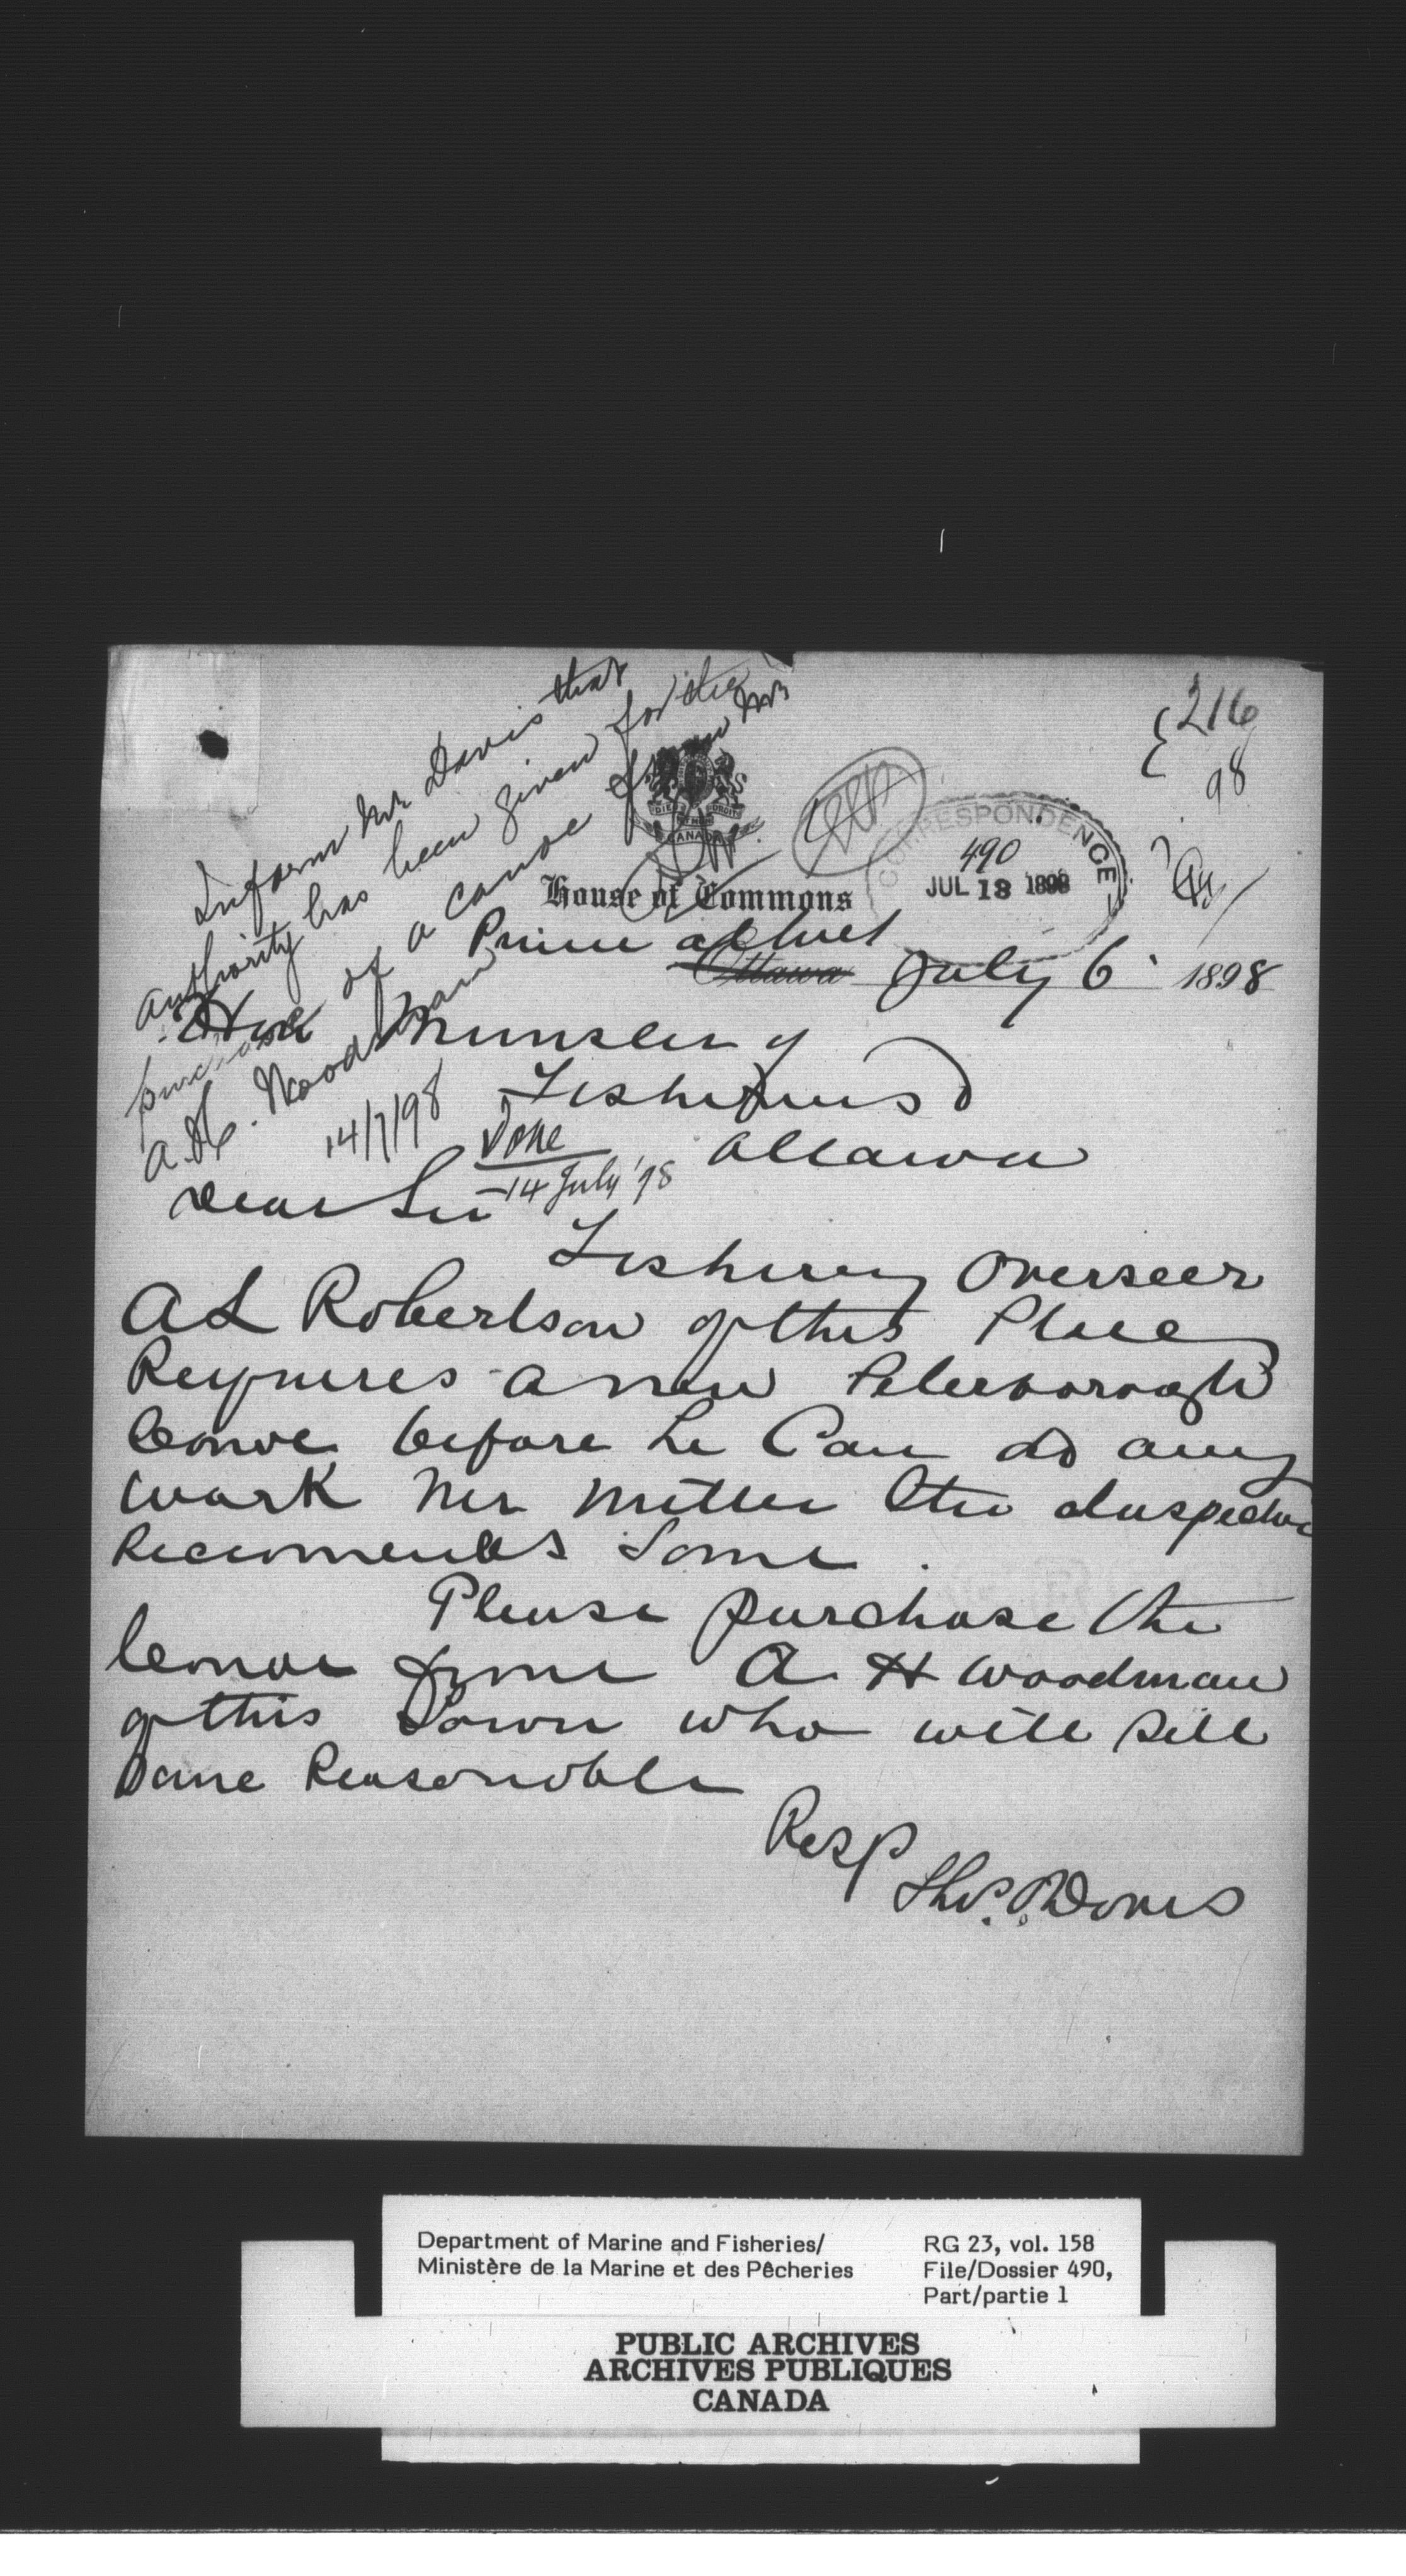 Inform Mr Davis that
authority has been given for the
purchase of a canoe from Mr
A. H. Woodman
14/7/98
Done
14 July '98
216
98
CORRESPONDENCE
490
JUL 13 1898
DIEU ET MON DROIT
CANADA
House of Commons
Prince albert
Ottawa July 6 1898
Hon Minister of
Fisheries
Ottawa
Dear Sir
Fishery Overseer
A L Robertson of this Place
Requires a new Peterborough
Canoe before he Can do any
work
Inspector
Recomends Same.
Please purchase the
Canoe from A H Woodman
of this Town who will sell
Same Reasonable
Resp
Thos. O. Davis
Department of Marine and Fisheries/
Ministère de la Marine et des Pêcheries
RG 23, vol. 158
File/Dossier 490,
Part/partie 1
PUBLIC ARCHIVES
ARCHIVES PUBLIQUES
CANADA